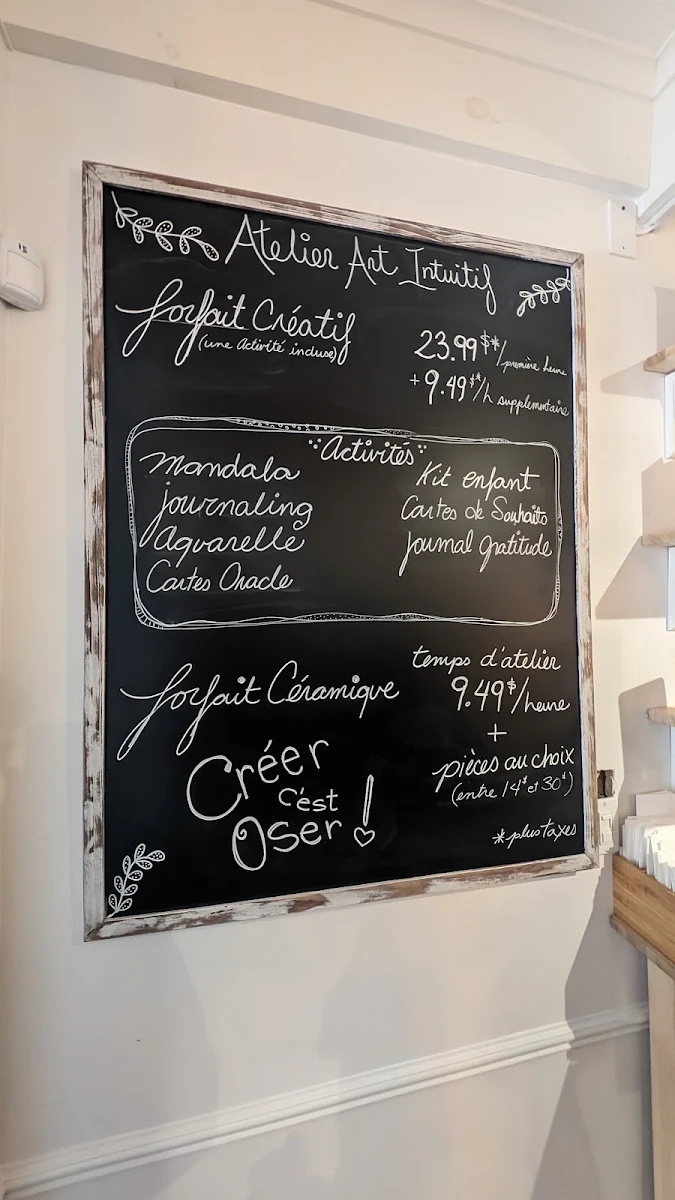 Atelier Art Intuitif
forfait Créatif
(une Activité incluse)
23.99$*/première heure
+9.49$*/h supplementaire
Activités
Mandala
journaling
Aquarelle
Cartes Oracle
Kit enfant
Cartes de Souhaits
journal gratitude
forfait Céramique
temps d'atelier
9.49$/heure
+
pièces au choix
(entre 14$ et 30$)
Créer
c'est
Oser!
*plus taxes